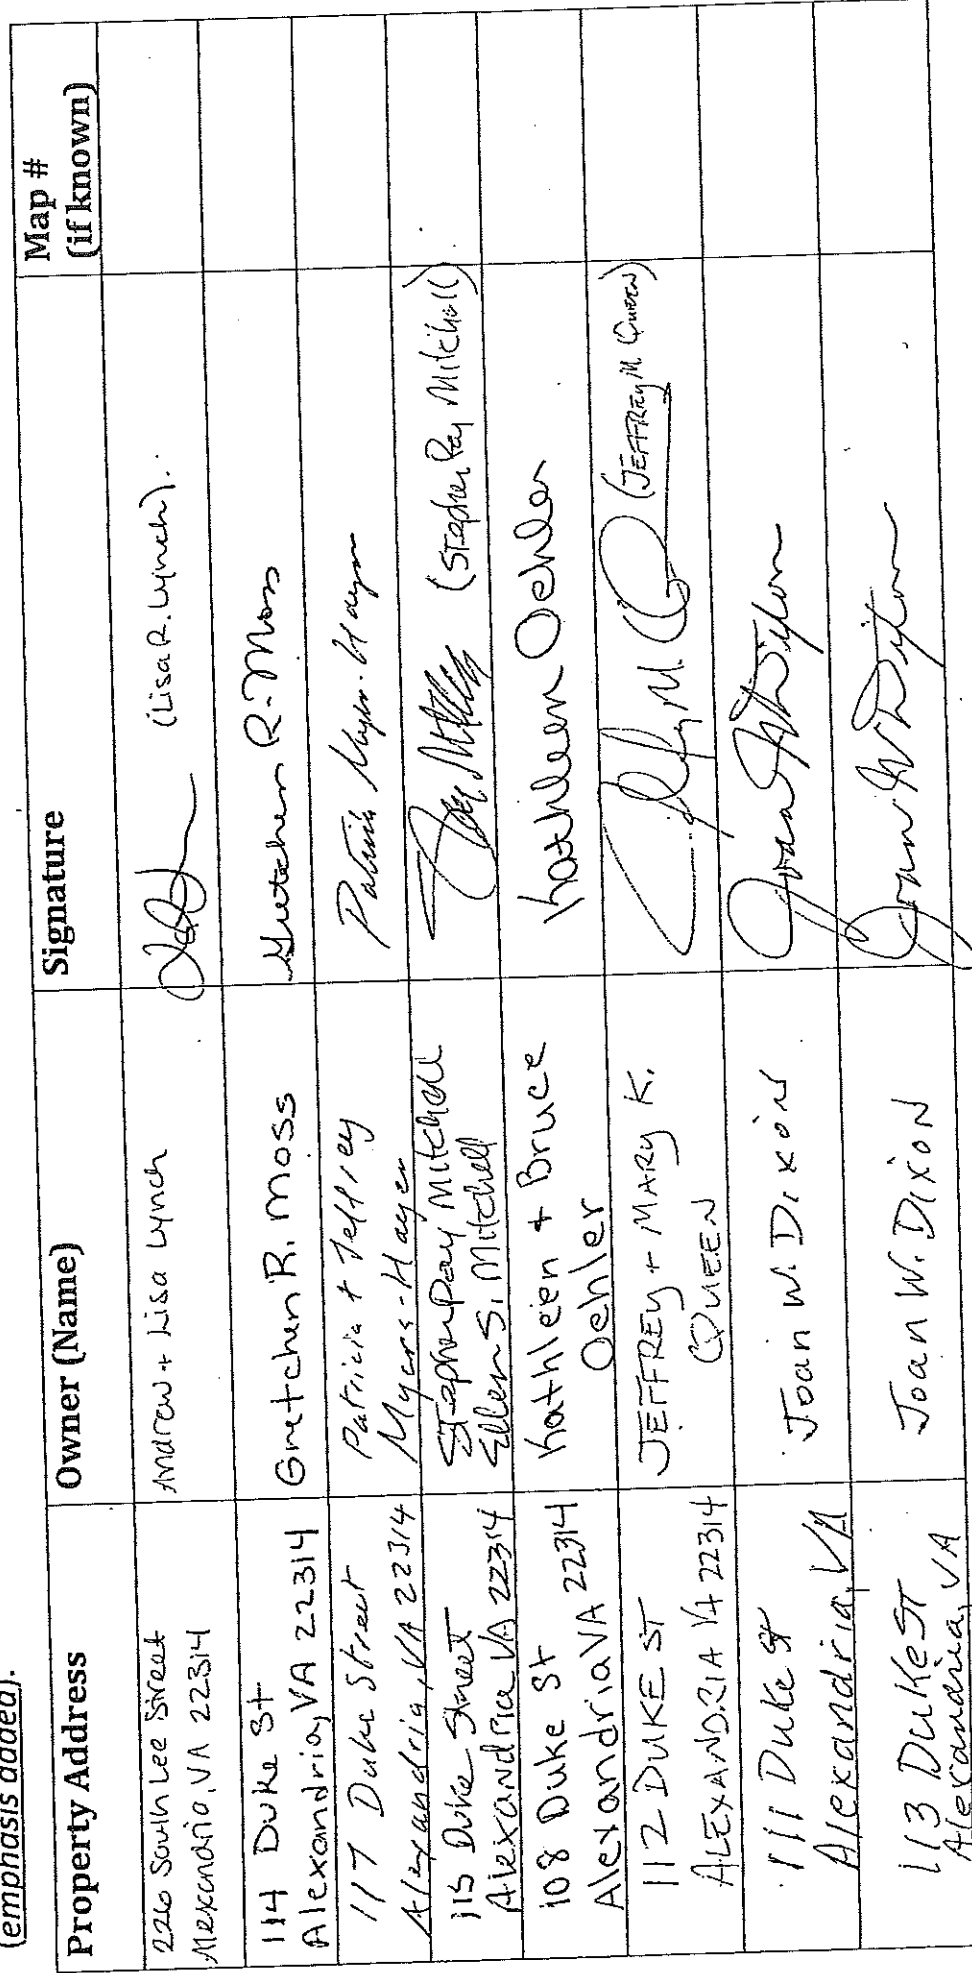 (emphasis added).
Property Address Owner (Name) Signature Map #
(if known)
226 South Lee Street
Alexandria, VA 22314
Andrew + Lisa Lynch
(Lisa R. Lynch).
114 Duke St
Alexandria, VA 22314
Gretchen R. Moss
Gretchen R. Moss
117 Duke Street
Alexandria, VA 22314
Patricia + Jeffrey
Myers-Hayer
Patricia Myers-Hayer
115 Duke Street
Alexandria VA 22314
Stephen Pay Mitchell
Ellen S. Mitchell
(Stephen Pay Mitchell)
108 Duke St
Alexandria VA 22314
Kathleen + Bruce
Oehler
Kathleen Oehler
112 DUKE ST
ALEXANDRIA VA 22314
JEFFREY + MARY K.
QUEEN
(JEFFREY M. QUEEN)
111 Duke St
Alexandria, VA
Joan W. Dixon
Joan W Dixon
113 Duke ST
Alexandria, VA
Joan W. Dixon
Joan W Dixon